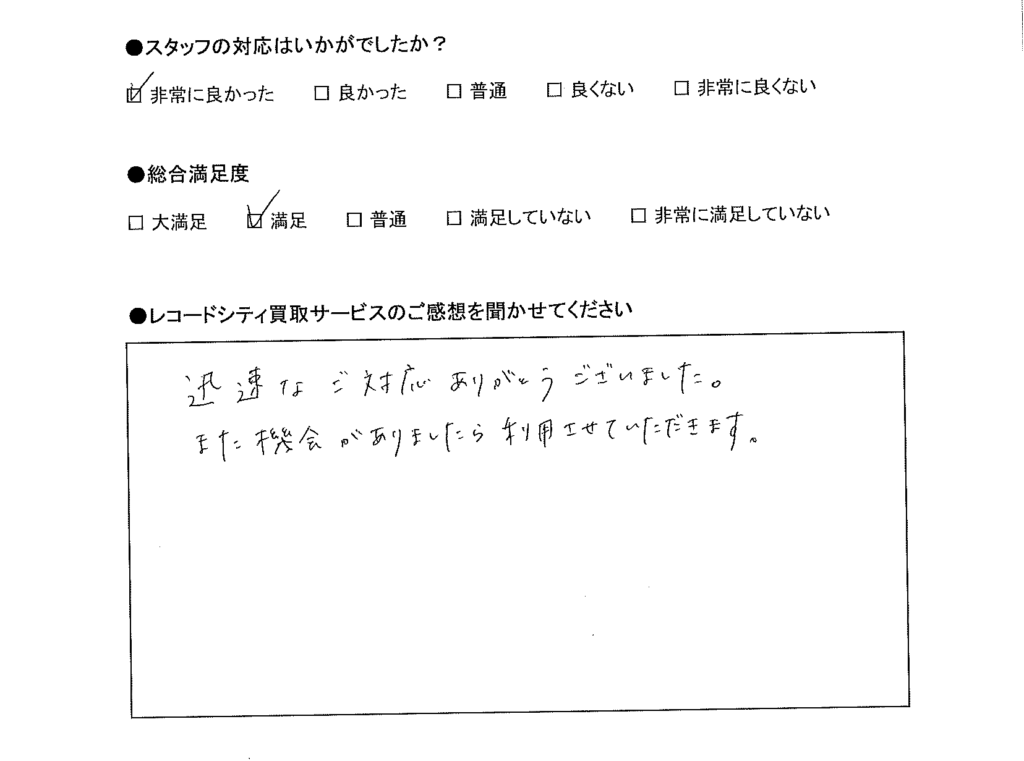 ●スタッフの対応はいかがでしたか？
☑ 非常に良かった □ 良かった □ 普通 □ 良くない □ 非常に良くない
●総合満足度
□ 大満足 ☑ 満足 □ 普通 □ 満足していない □ 非常に満足していない
●レコードシティ買取サービスのご感想を聞かせてください
迅速なご対応ありがとうございました。
また機会がありましたら利用させていただきます。